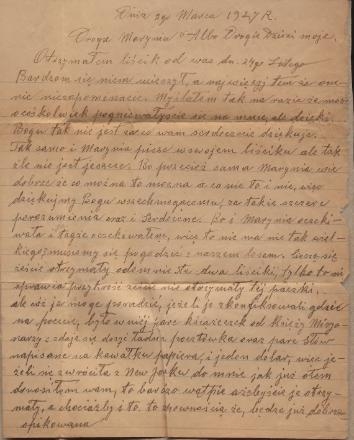 Dnia 29 Marca 1927 R.
Droga Marynia "Albo Drogie Dzieci moje.
Otrzymałem liścik od was dn. 24go Lutego
Bardzom się niem ucieszył, a najwięcej tem że o mnie
nie zapomnacie. Myślałem tak na razie że może
ocośkolwiek pogniewaliście się na mnie, ale dzięki
Bogu tak nie jest za co wam serdecznie dziękuję.
Tak samo i Marynia pisze w swojem liściku ale tak
źle nie jest jeszcze. Bo przecież sama Marynia wie
dobrze że co można to można a co nie to i nie, więc
dziękujmy Bogu wszechmogącemu, za takie szczere
porozumienia oraz i Serdeczne. Bo i Marynia oczeki-
wała i ja też oczekowałem, więc to nie ma nic tak wiel-
kiego musiemy się pogodzić z naszem losem. Cieszę się
żeście otrzymały odemnie te dwa liściki, tylko to mi
sprawia przykrość żeście nie otrzymały tej paczki.
ale cóż ja mogę poradzić, jeżeli je skonfiskowali gdzieś
na poczcie, było w niej parę książeczek od Księży Misjo-
narzy zdaje się dwie, także pocztówka oraz parę słów
napisane na kawałku papieru, i jeden dolar, więc je-
żeli nie zwróciła z New Yorku do mnie jak już o tem
donosiłem wam, to bardzo wątpię ażebyście je otrzy-
mały, a chociażby i to, to z pewnością, będzie już dobrze
spikowana